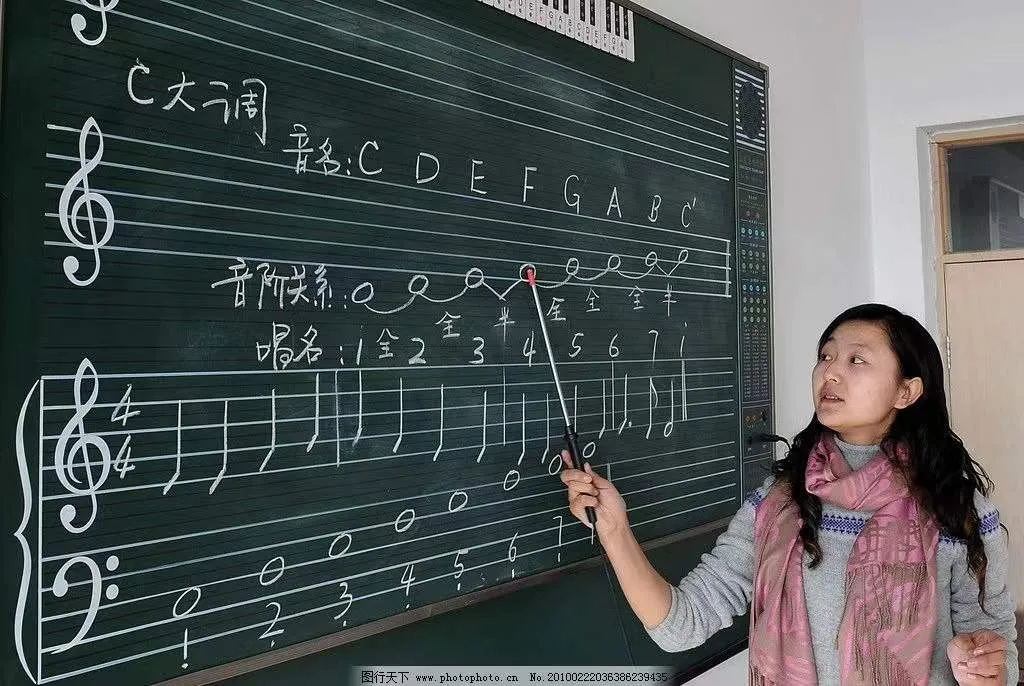 C大调
音名:C D E F G A B C'
音阶关系:
全 全 半 全 全 全 半
唱名:1 2 3 4 5 6 7 i
4
4
1 2 3 4 5 6 7
图行天下 www.photophoto.cn No.20100222036386239435